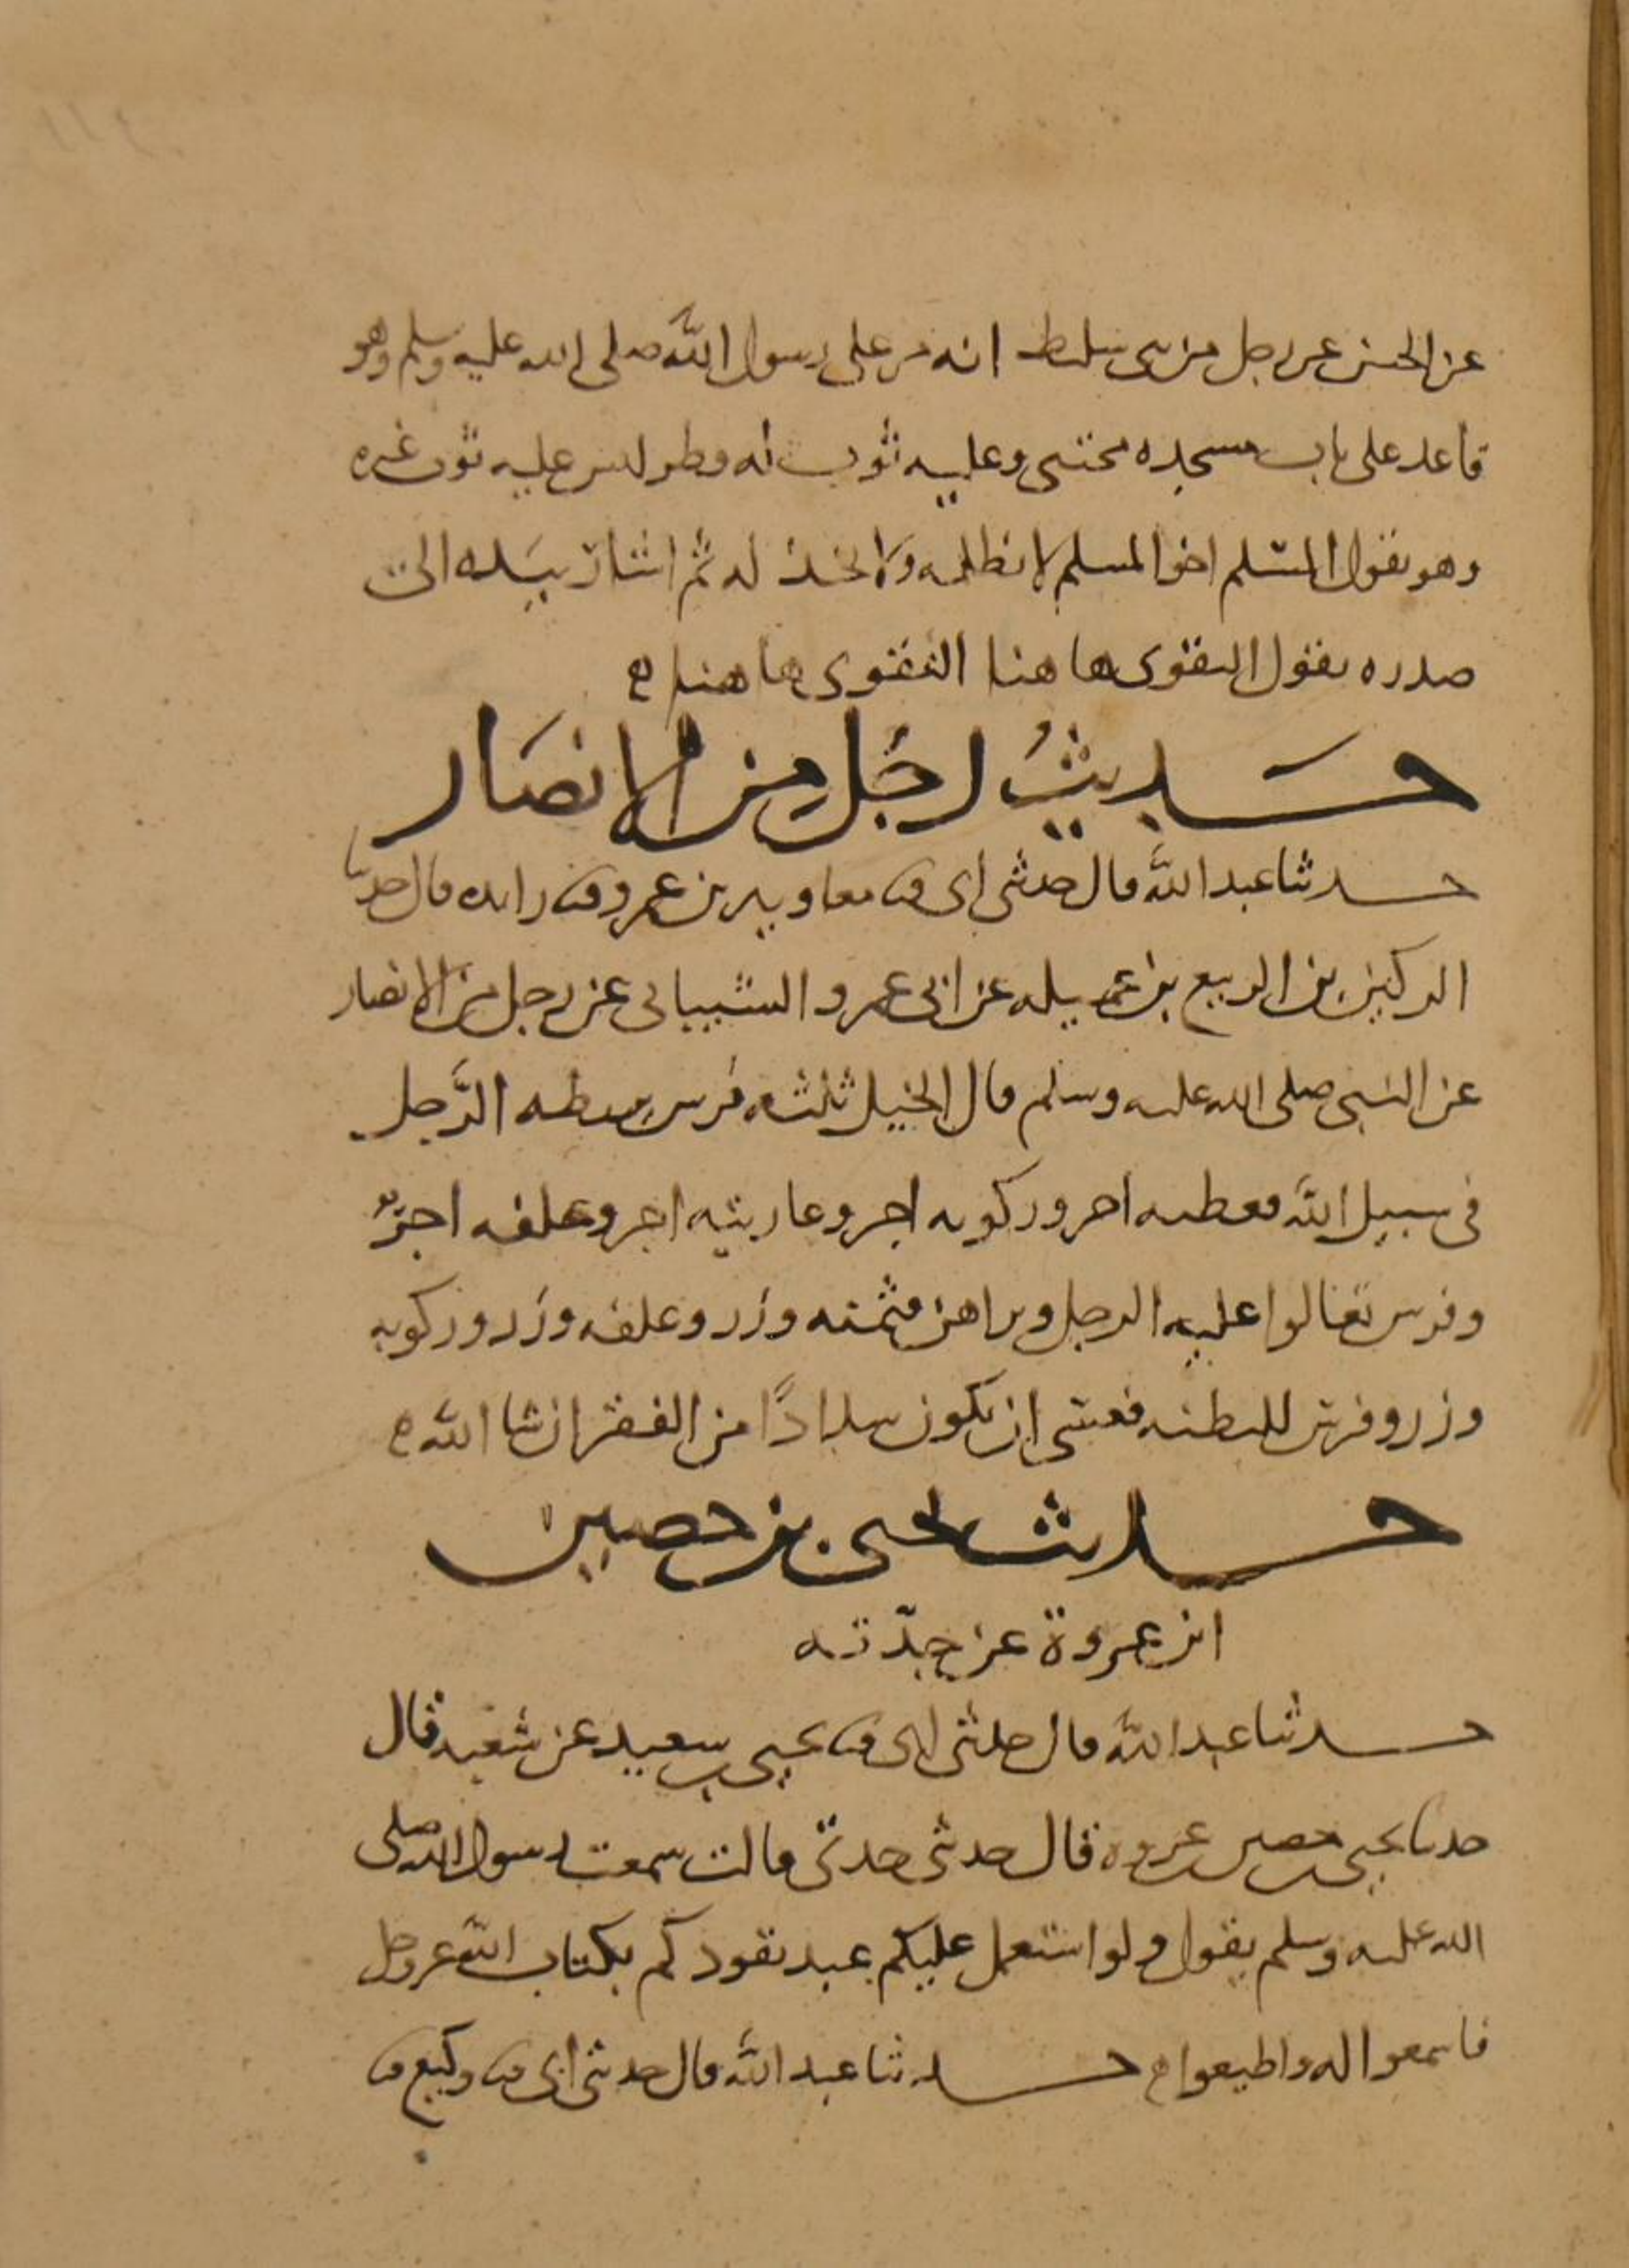 عن الحسن عن رجل من بنى سليط انه مر على رسول الله صلى الله عليه وسلم وهو
قاعد على باب مسجده محتبى وعليه ثوب له قطر ليس عليه ثوب غيره
وهو يقول المسلم اخو المسلم لا يظلمه ولا يخذله ثم اشار بيده الى
صدره يقول التقوى ها هنا التقوى ها هنا
حديث رجل من الانصار
حدثنا عبد الله قال حدثنى ابى ثنا معاوية بن عمرو ثنا زايده قال حدثنا
الركين بن الربيع بن عميله عن ابى عمرو الشيبانى عن رجل من الانصار
عن النبى صلى الله عليه وسلم قال الخيل ثلثه فرس يربطه الرجل
فى سبيل الله فثمنه اجر وركوبه اجر وعاريته اجر وعلفه اجر
وفرس يغالوا عليه الرجل ويراهن فثمنه وزر وعلفه وزر وركوبه
وزر وفرس للبطنه فعسى ان يكون سدادًا من الفقر ان شا الله
حديث يحيى بن حصين
ابن عروة عن جدّته
حدثنا عبد الله قال حدثنى ابى ثنا يحيى بن سعيد عن شعبه قال
حدثنا يحيى بن حصين بن عروه قال حدثتنى جدتى قالت سمعت رسول الله صلى
الله عليه وسلم يقول ولو استعمل عليكم عبد يقودكم بكتاب الله عز وجل
فاسمعوا له واطيعوا حدثنا عبد الله قال حدثنى ابى ثنا وكيع ثنا